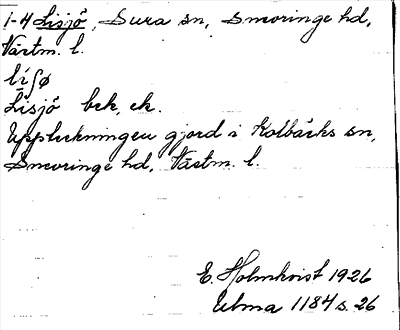 1-4 Lisjö, Sura sn, Snevringe hd,
Västm. l.
li´ʃø
Lisjö bek, ek.
Uppteckningen gjord i Kolbäcks sn,
Snevringe hd, Västm. l.
E. Holmkvist 1926
Ulma 1184 s. 26